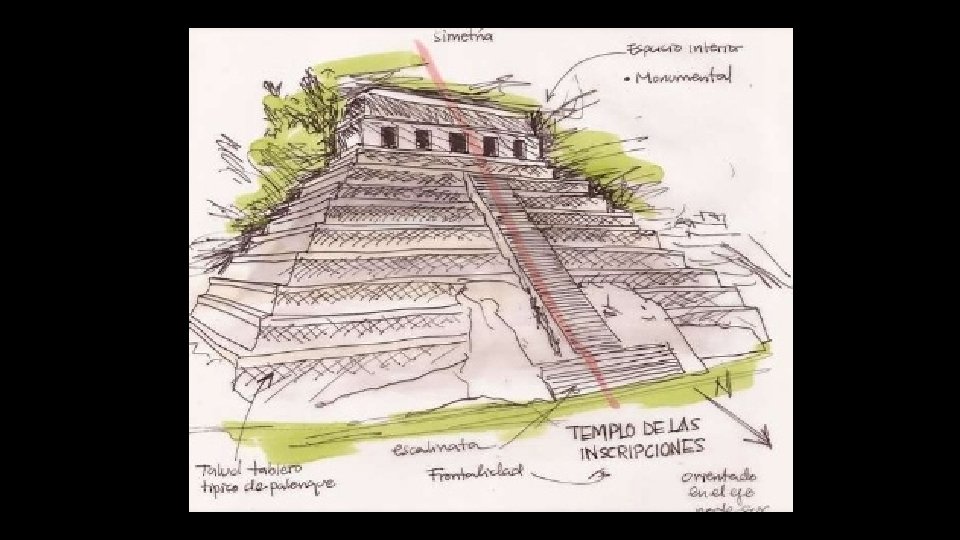 simetría
Espacio interior
• Monumental
N
TEMPLO DE LAS
INSCRIPCIONES
escalinata
Frontalidad
Talud tablero
típico de palenque
orientado
en el eje
norte sur